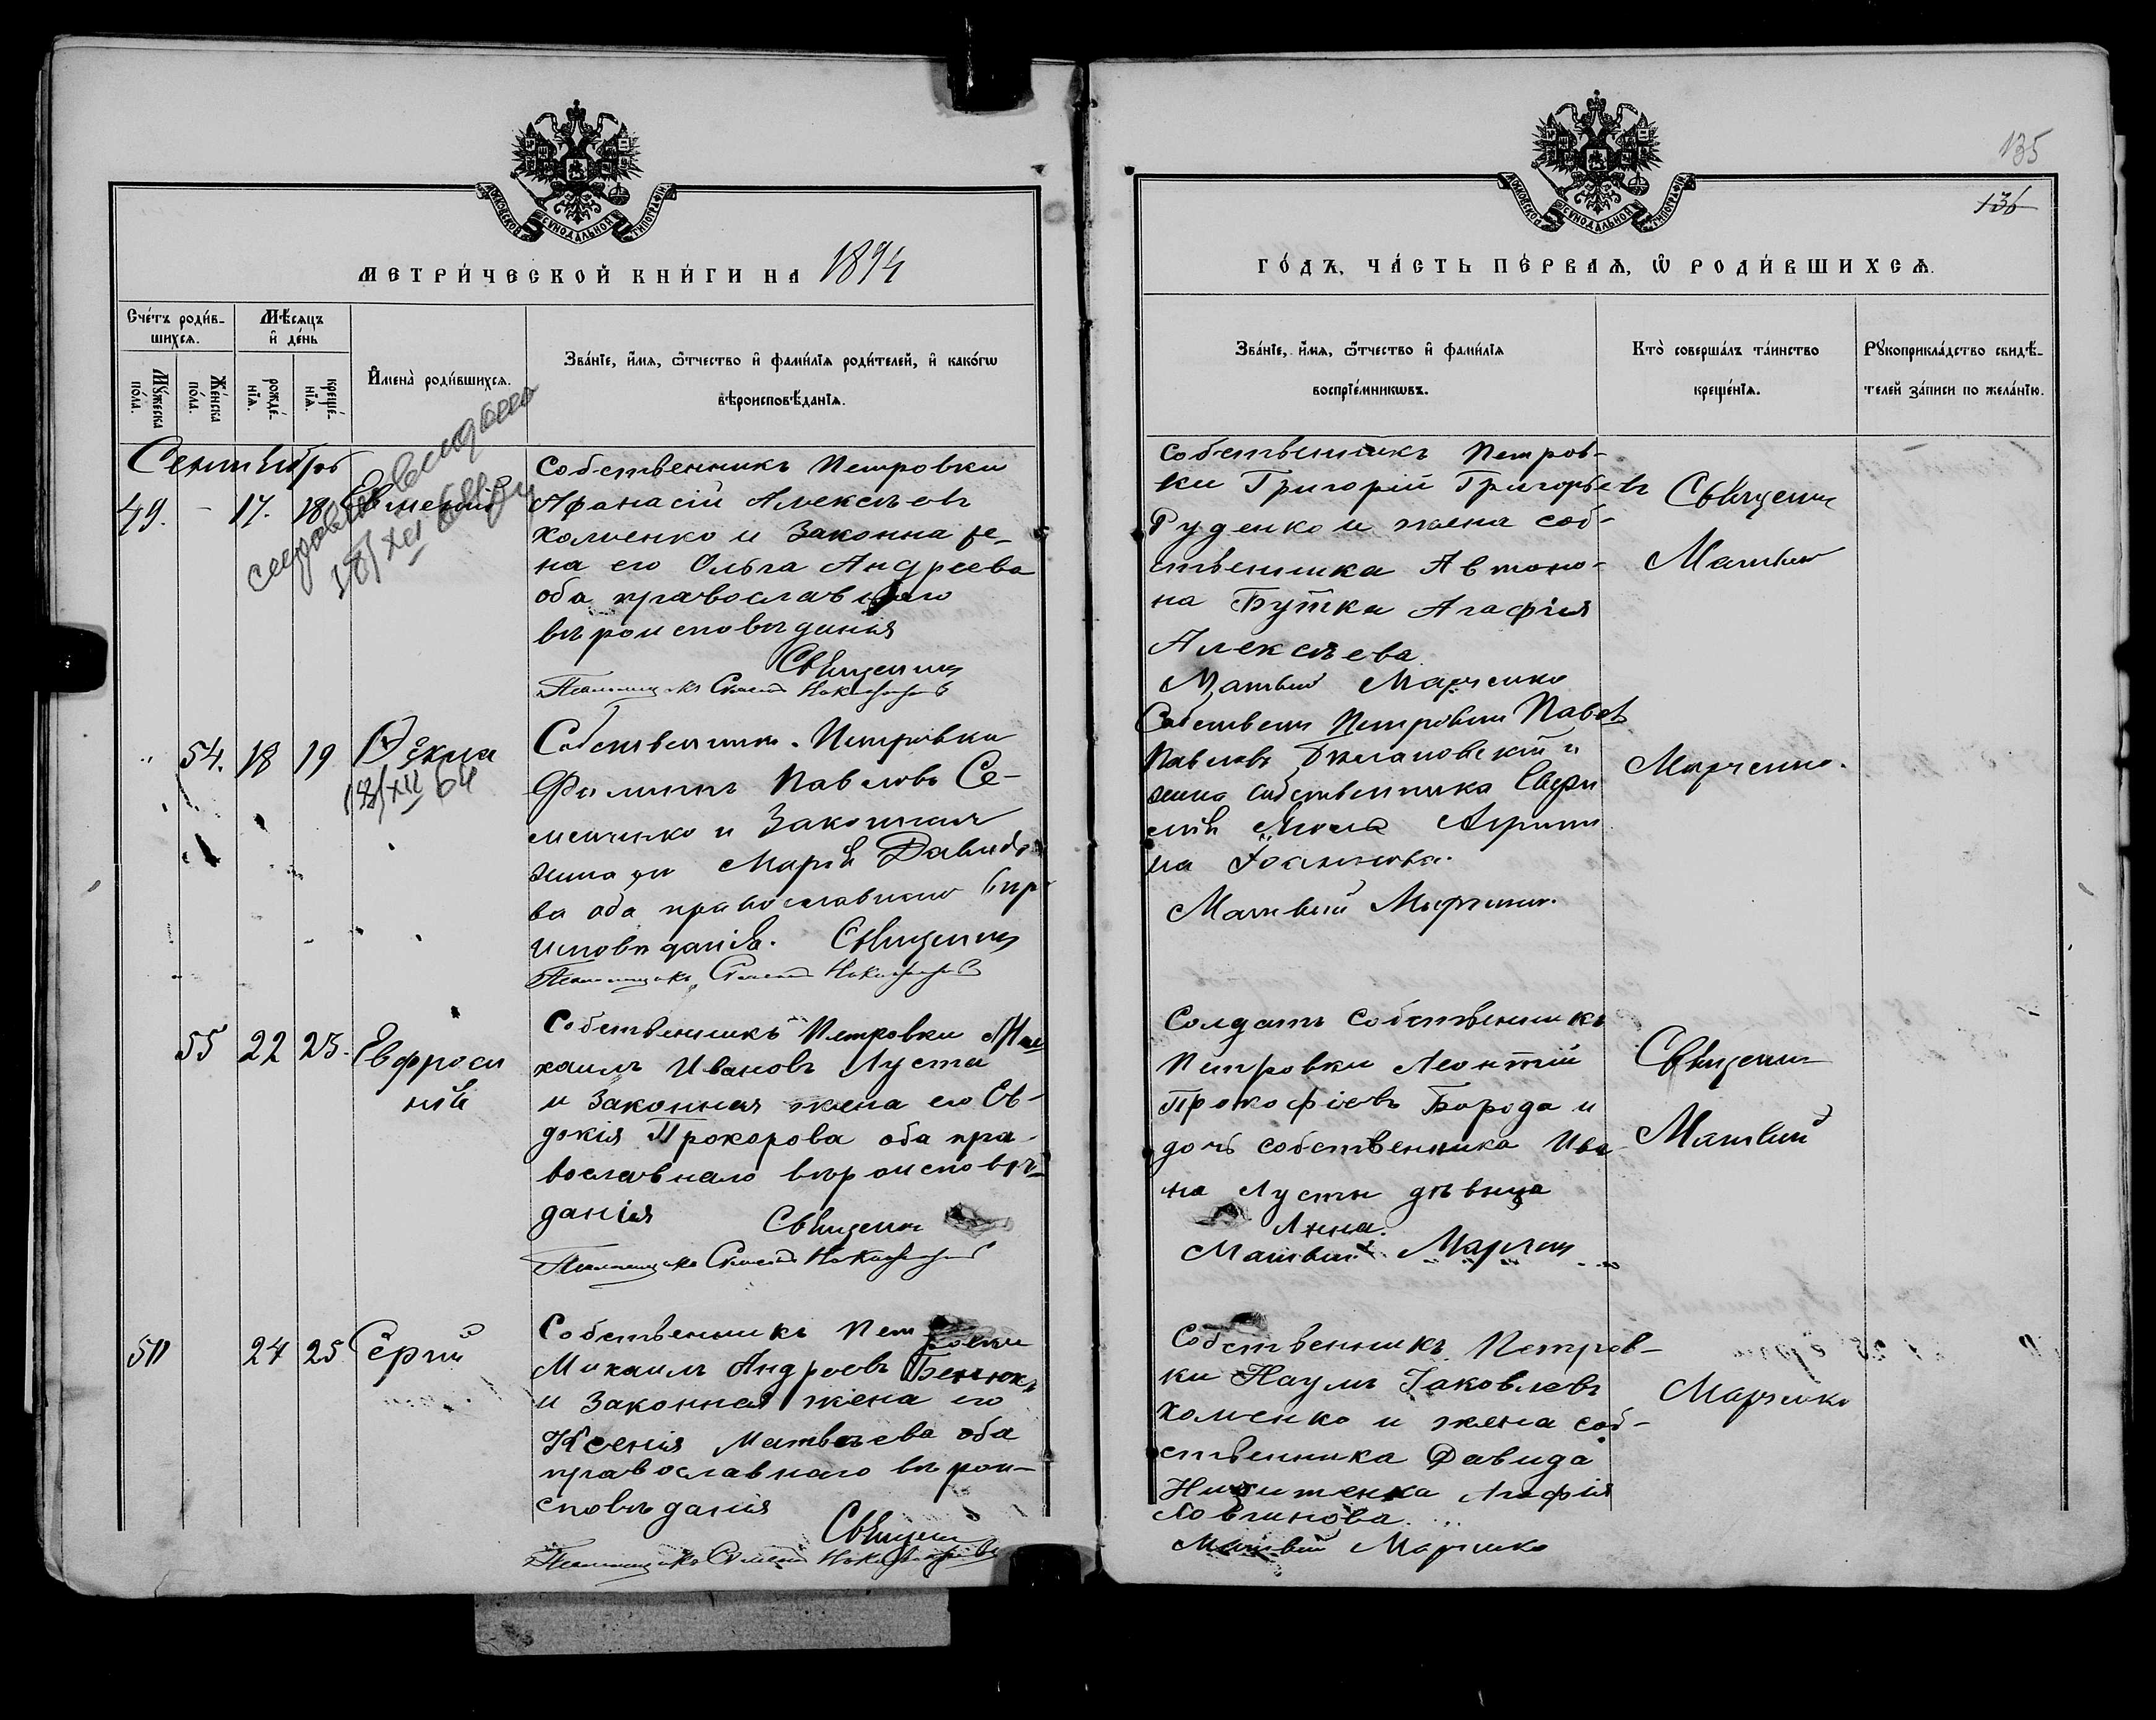 МОСКОВСКОЙ СѴНОДАЛЬНОЙ ТИПОГРАФІИ
МЕТРИ́ЧЕСКОЙ КНИ́ГИ НА 1894
Сче́тъ роди́в-
шихсѧ.
Мѣ́сѧцъ
и҆ де́нь
Мꙋ́жеска
по́ла.
Же́нска
по́ла.
рожде́-
нїѧ.
креще́-
нїѧ.
И҆мена̀ роди́вшихсѧ.
Зва́нїе, и҆́мѧ, ѻ҆́тчество и҆ фами́лїѧ роди́телей, и҆ како́гѡ
вѣроисповѣ́данїѧ.
Сентябрь
49. - 17. 18 Евменій
18/XII
Собственникъ Петровки
Афанасій Алексѣевъ
Хоменко и Законна же-
на его Ольга Андреева
оба православнаго
вѣроисповѣданія
Священник
Псаломщикъ
" 54. 18 19 Ѳекла
18/XII 64
Собственникъ Петровки
Филиппъ Павловъ Се-
менченко и Законная
жена его Марія Давидо
ва оба православнаго вѣро
исповѣданія. Священник
Псаломщикъ
55 22 25. Евфроси
нія
Собственникъ Петровки Ми
хаилъ Ивановъ Луста
и Законная жена его Ев-
докія Прохорова оба пра-
вославнаго вѣроисповѣ-
данія Священник
Псаломщикъ
50 24 25 Сергій
Собственникъ Петровки
Михаилъ Андреевъ Бенчюкъ
и Законная жена его
Ксенія Матвѣева оба
православнаго вѣрои-
сповѣданія
Священник
Псаломщикъ
135
136
МОСКОВСКОЙ СѴНОДАЛЬНОЙ ТИПОГРАФІИ
ГО́ДЪ, ЧА́СТЬ ПЕ́РВАѦ, Ѡ҆ РОДИ́ВШИХСѦ.
Зва́нїе, и҆́мѧ, ѻ҆́тчество и҆ фами́лїѧ
воспрїе́мникѡвъ.
Кто̀ соверша́лъ та́инство
креще́нїѧ.
Рꙋкоприкла́дство свидѣ́-
телей за́писи по жела́нїю.
Собственникъ Петров-
ки Григорій Григорьевъ
Руденко и жена соб-
ственника Автоно-
на Бутка Агафія
Алексѣева
Матвій Марченко
Священик
Матвій
Собственик Петровки Павелъ
Павловъ и
жена собственника
на Іоаннова.
Матвій Марченко.
Марченко.
Солдатъ собственникъ
Петровки Леонтій
Прокофіевъ Борода и
дочь собственника Ива
на Лусты дѣвица
Анна.
Матвій Марчен
Священик
Матвій
Собственникъ Петров-
ки Наумъ Іаковлевъ
Хоменко и жена соб-
ственника Давида
Никитенка Агафія
Логвинова.
Матвій Марченко
Марченко